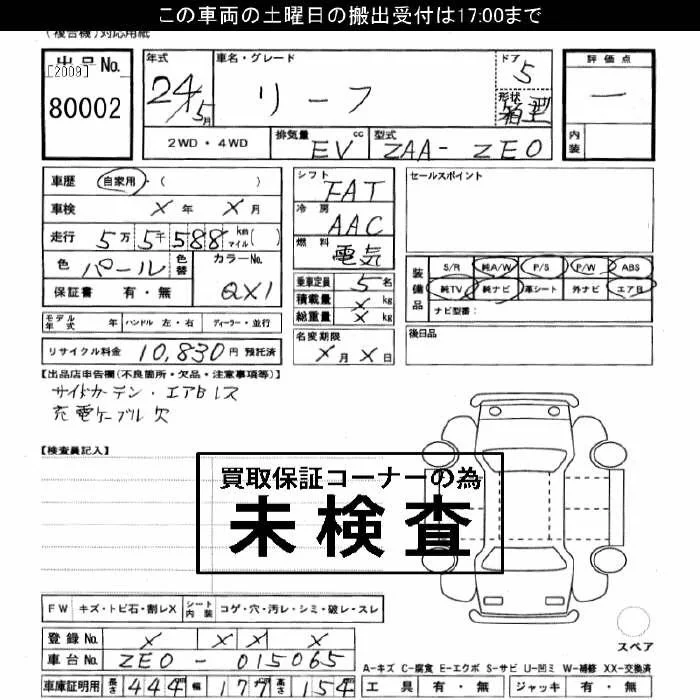 この車両の土曜日の搬出受付は17:00まで
(複合機)対応用紙
出品No.
[2009]
80002
年式
24/5月
車名・グレード
リーフ
ドア
5
形状
箱型
評価点
一
内装
2WD・4WD
排気量 cc
EV
型式
ZAA-ZEO
車歴 自家用・( )
車検 X年 X月
走行 5万5千588 km マイル( )
色 パール 色替
カラーNo.
QX1
保証書 有・無
モデル年式 年 ハンドル 左・右 ディーラー・並行
リサイクル料金 10,830円 預託済
シフト
FAT
冷房
AAC
燃料
電気
乗車定員 5名
積載量 X kg
総重量 X kg
名変期限
X月X日
セールスポイント
装備品
S/R 純A/W P/S P/W ABS
純TV 純ナビ 革シート 外ナビ エアB
ナビ型番:
後日品
【出品店申告欄(不良箇所・欠品・注意事項等)】
サイドカーテン・エアBレス
充電ケーブル欠
【検査員記入】
買取保証コーナーの為
未検査
FW キズ・トビ石・割レX シート内装 コゲ・穴・汚レ・シミ・破レ・スレ
登録No. X X X X
車台No. ZEO-015065
車庫証明用 長さ 444 幅 177 高さ 154
スペア
A-キズ C-腐食 E-エクボ S-サビ U-凹ミ W-補修 XX-交換済
工具 有・無 ジャッキ 有・無